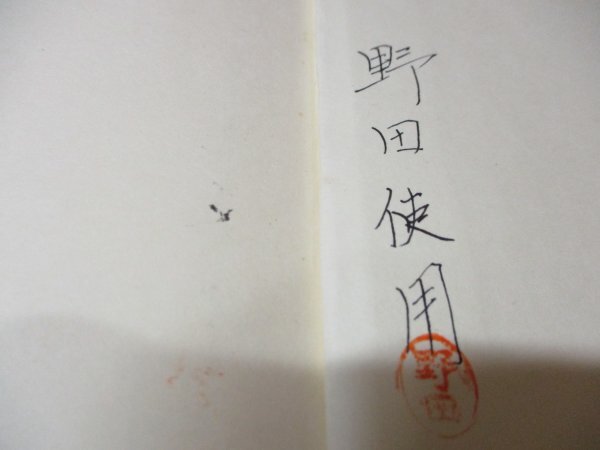 野田使用
野田